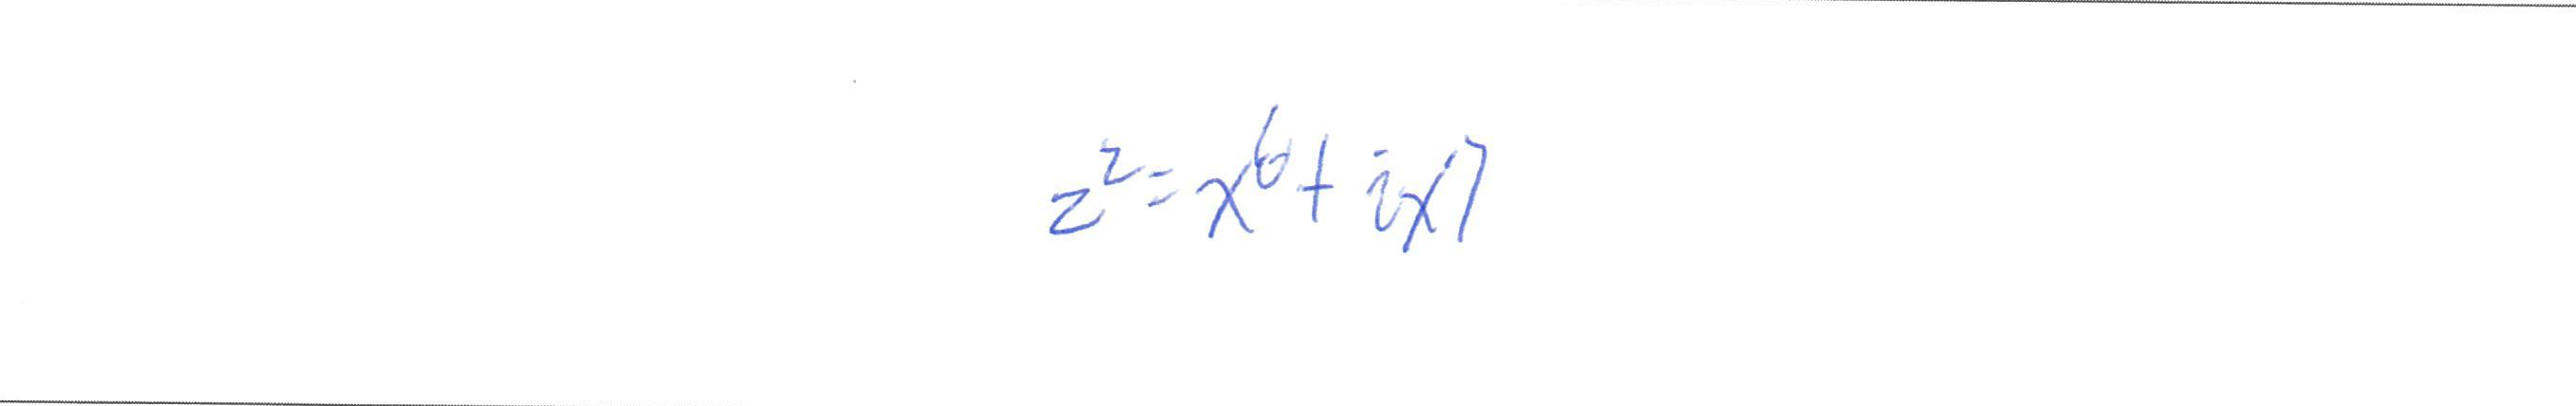 z² = x⁶ + ix⁷